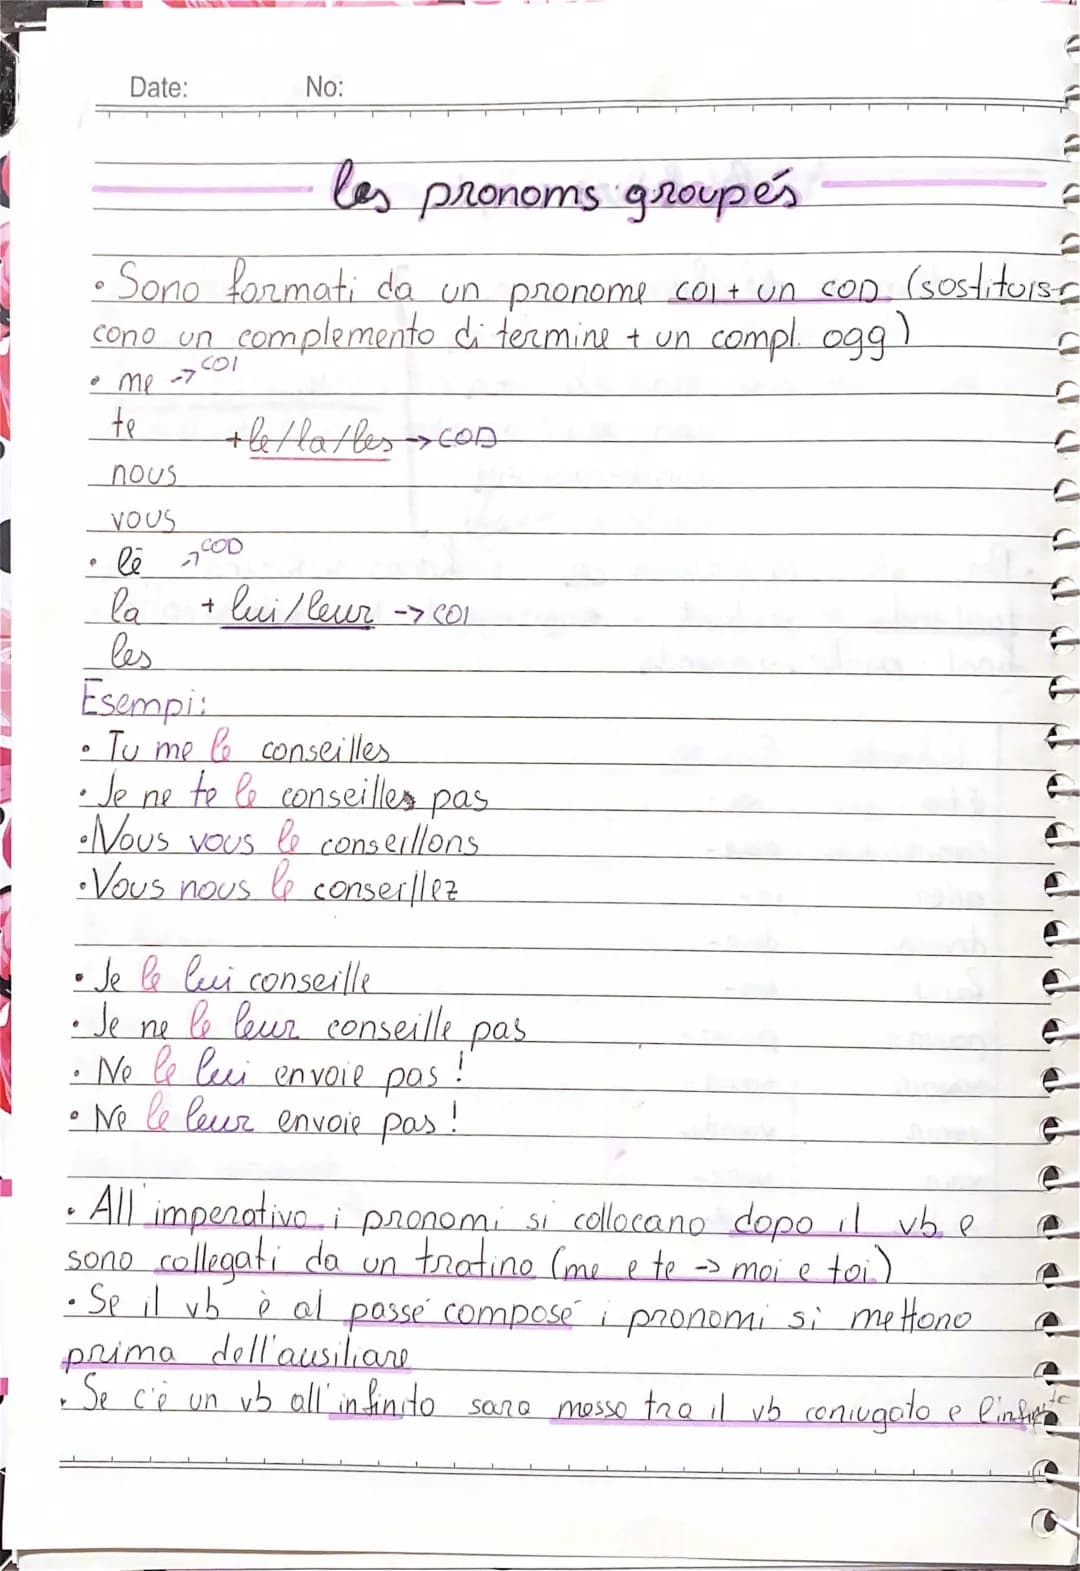 Date: No:
les pronoms groupés
• Sono formati da un pronome COI + un COD (sostituis-
cono un complemento di termine + un compl. ogg)
• me -> COI
te
+le/la/les -> COD
nous
vous
• le -> COD
la + lui/leur -> COI
les
Esempi:
• Tu me le conseilles
• Je ne te le conseilles pas
• Nous vous le conseillons
• Vous nous le conseillez
• Je le lui conseille
• Je ne le leur conseille pas
• Ne le lui envoie pas !
• Ne le leur envoie pas !
• All'imperativo i pronomi si collocano dopo il vb e
sono collegati da un tratino (me e te -> moi e toi)
• Se il vb è al passé composé i pronomi si mettono
prima dell'ausiliare
• Se c'è un vb all'infinito sara messo tra il vb coniugato e l'infinito